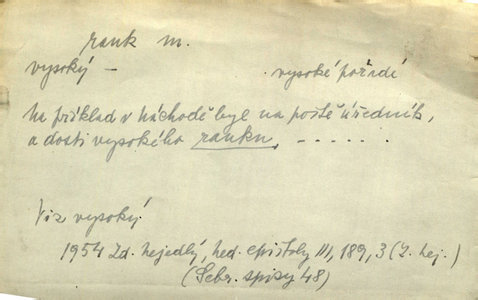 rank m.
vysoký – vysoké pořadí
Na příklad v Náchodě byl na poště úředník,
a dosti vysokého ranku, – – – – – –
Viz vysoký.
1954 Zd. Nejedlý, Ned. epištoly III, 189, 3 (Z. Nej.)
(Sebr. spisy 48)